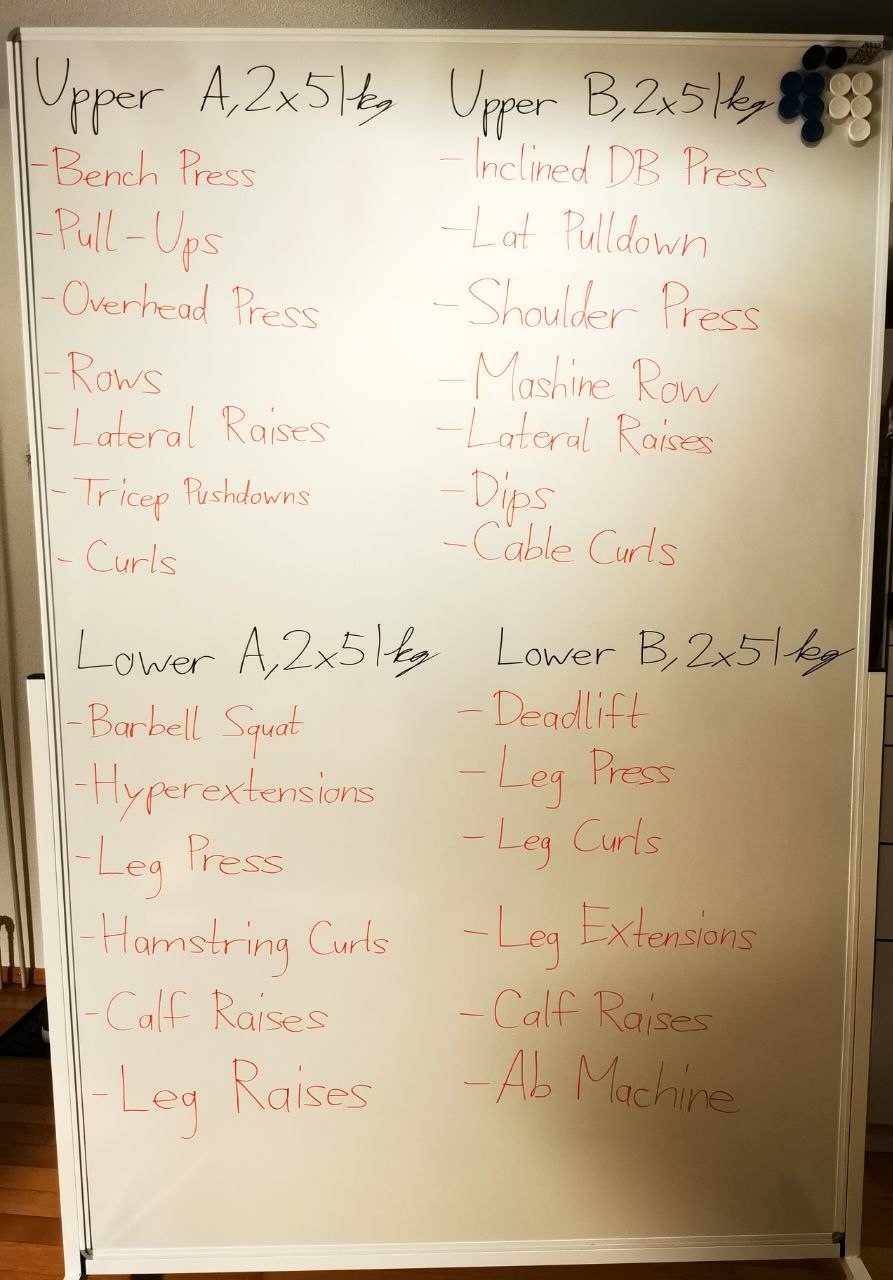 Upper A, 2x5 | kg
- Bench Press
- Pull-Ups
- Overhead Press
- Rows
- Lateral Raises
- Tricep Pushdowns
- Curls
Upper B, 2x5 | kg
- Inclined DB Press
- Lat Pulldown
- Shoulder Press
- Mashine Row
- Lateral Raises
- Dips
- Cable Curls
Lower A, 2x5 | kg
- Barbell Squat
- Hyperextensions
- Leg Press
- Hamstring Curls
- Calf Raises
- Leg Raises
Lower B, 2x5 | kg
- Deadlift
- Leg Press
- Leg Curls
- Leg Extensions
- Calf Raises
- Ab Machine